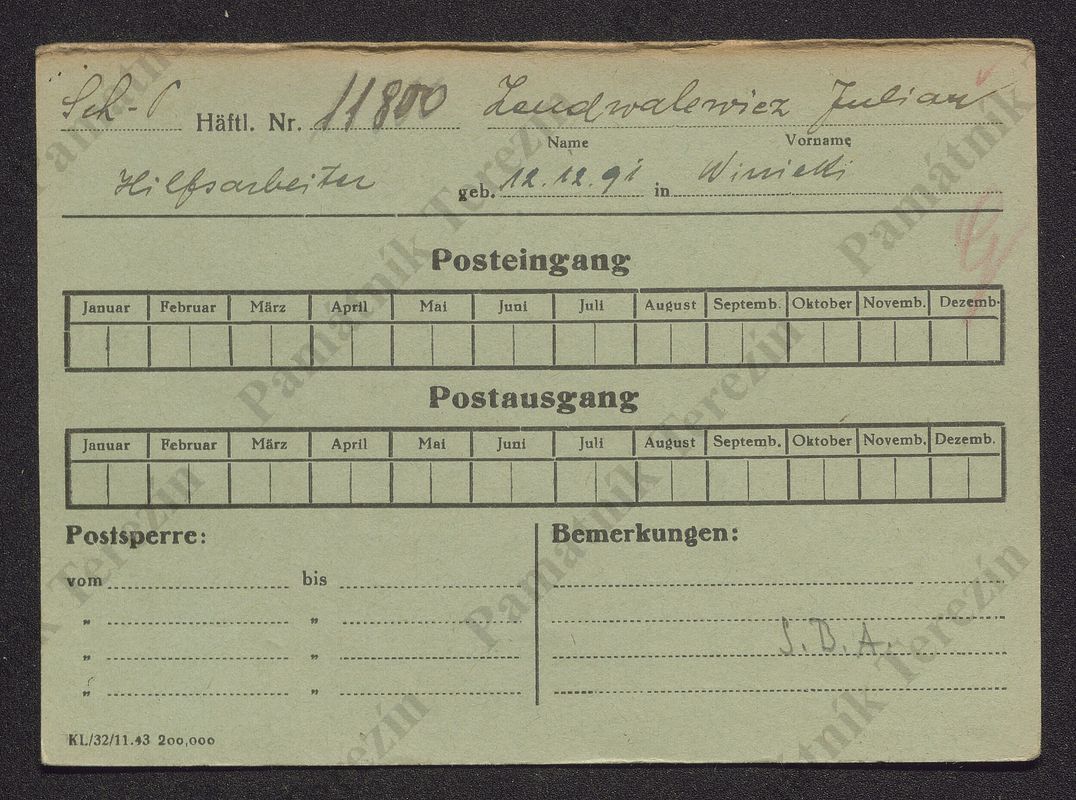 Sch-P Häftl. Nr. 11800 Lendwalewicz Julian
Name Vorname
Hilfsarbeiter geb. 12.12.91 in Winicki
Posteingang
Januar Februar März April Mai Juni Juli August Septemb. Oktober Novemb. Dezemb.
Postausgang
Januar Februar März April Mai Juni Juli August Septemb. Oktober Novemb. Dezemb.
Postsperre: Bemerkungen:
vom bis
„ „
„ „ S.B.A.
„ „
KL/32/11.43 200,000
Památník Terezín